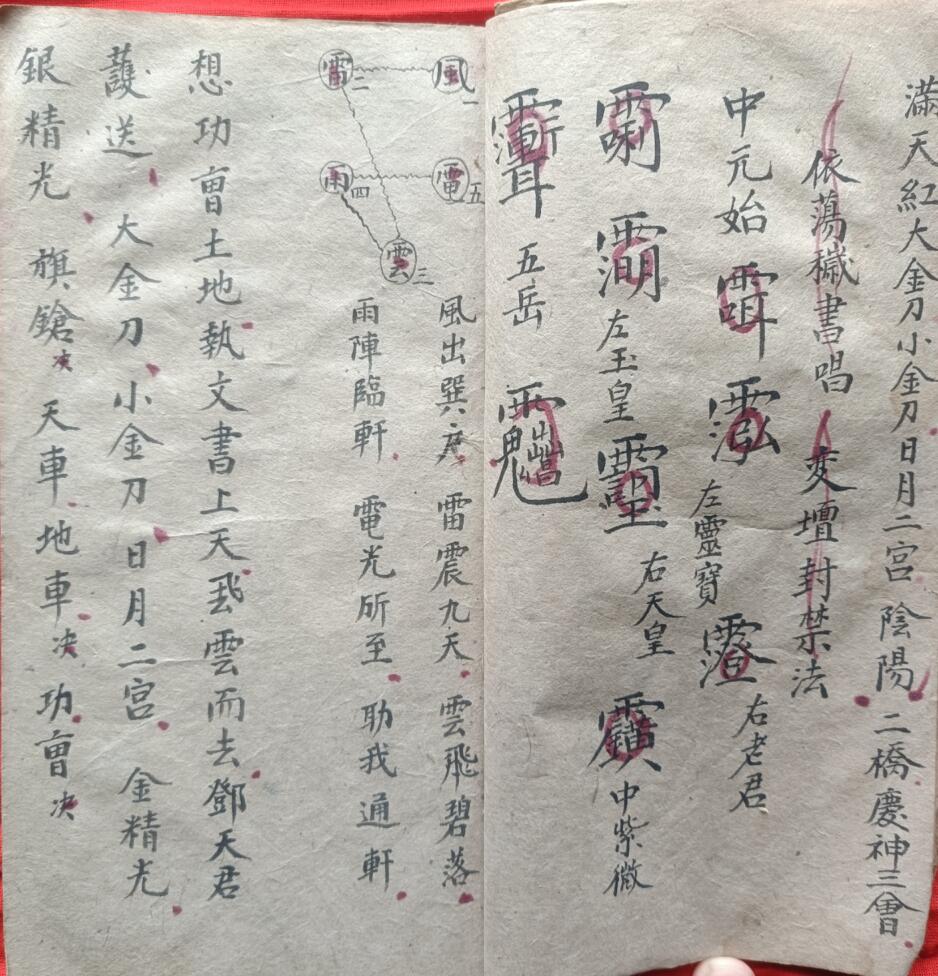 滿天紅大金刀小金刀日月二宮陰陽二橋慶神三會
依蕩穢書唱 変壇封禁法
中元始
左靈寶
右老君
左玉皇
右天皇
中紫微
五岳
風一
雷二
雲三
雨四
電五
風出巽方 雷震九天 雲飛碧落
雨陣臨軒 電光所至 助我通軒
想功曺土地執文書上天飛雲而去鄧天君
護送 大金刀 小金刀 日月二宮 金精光
銀精光 旗鎗决 天車地車决 功曺决